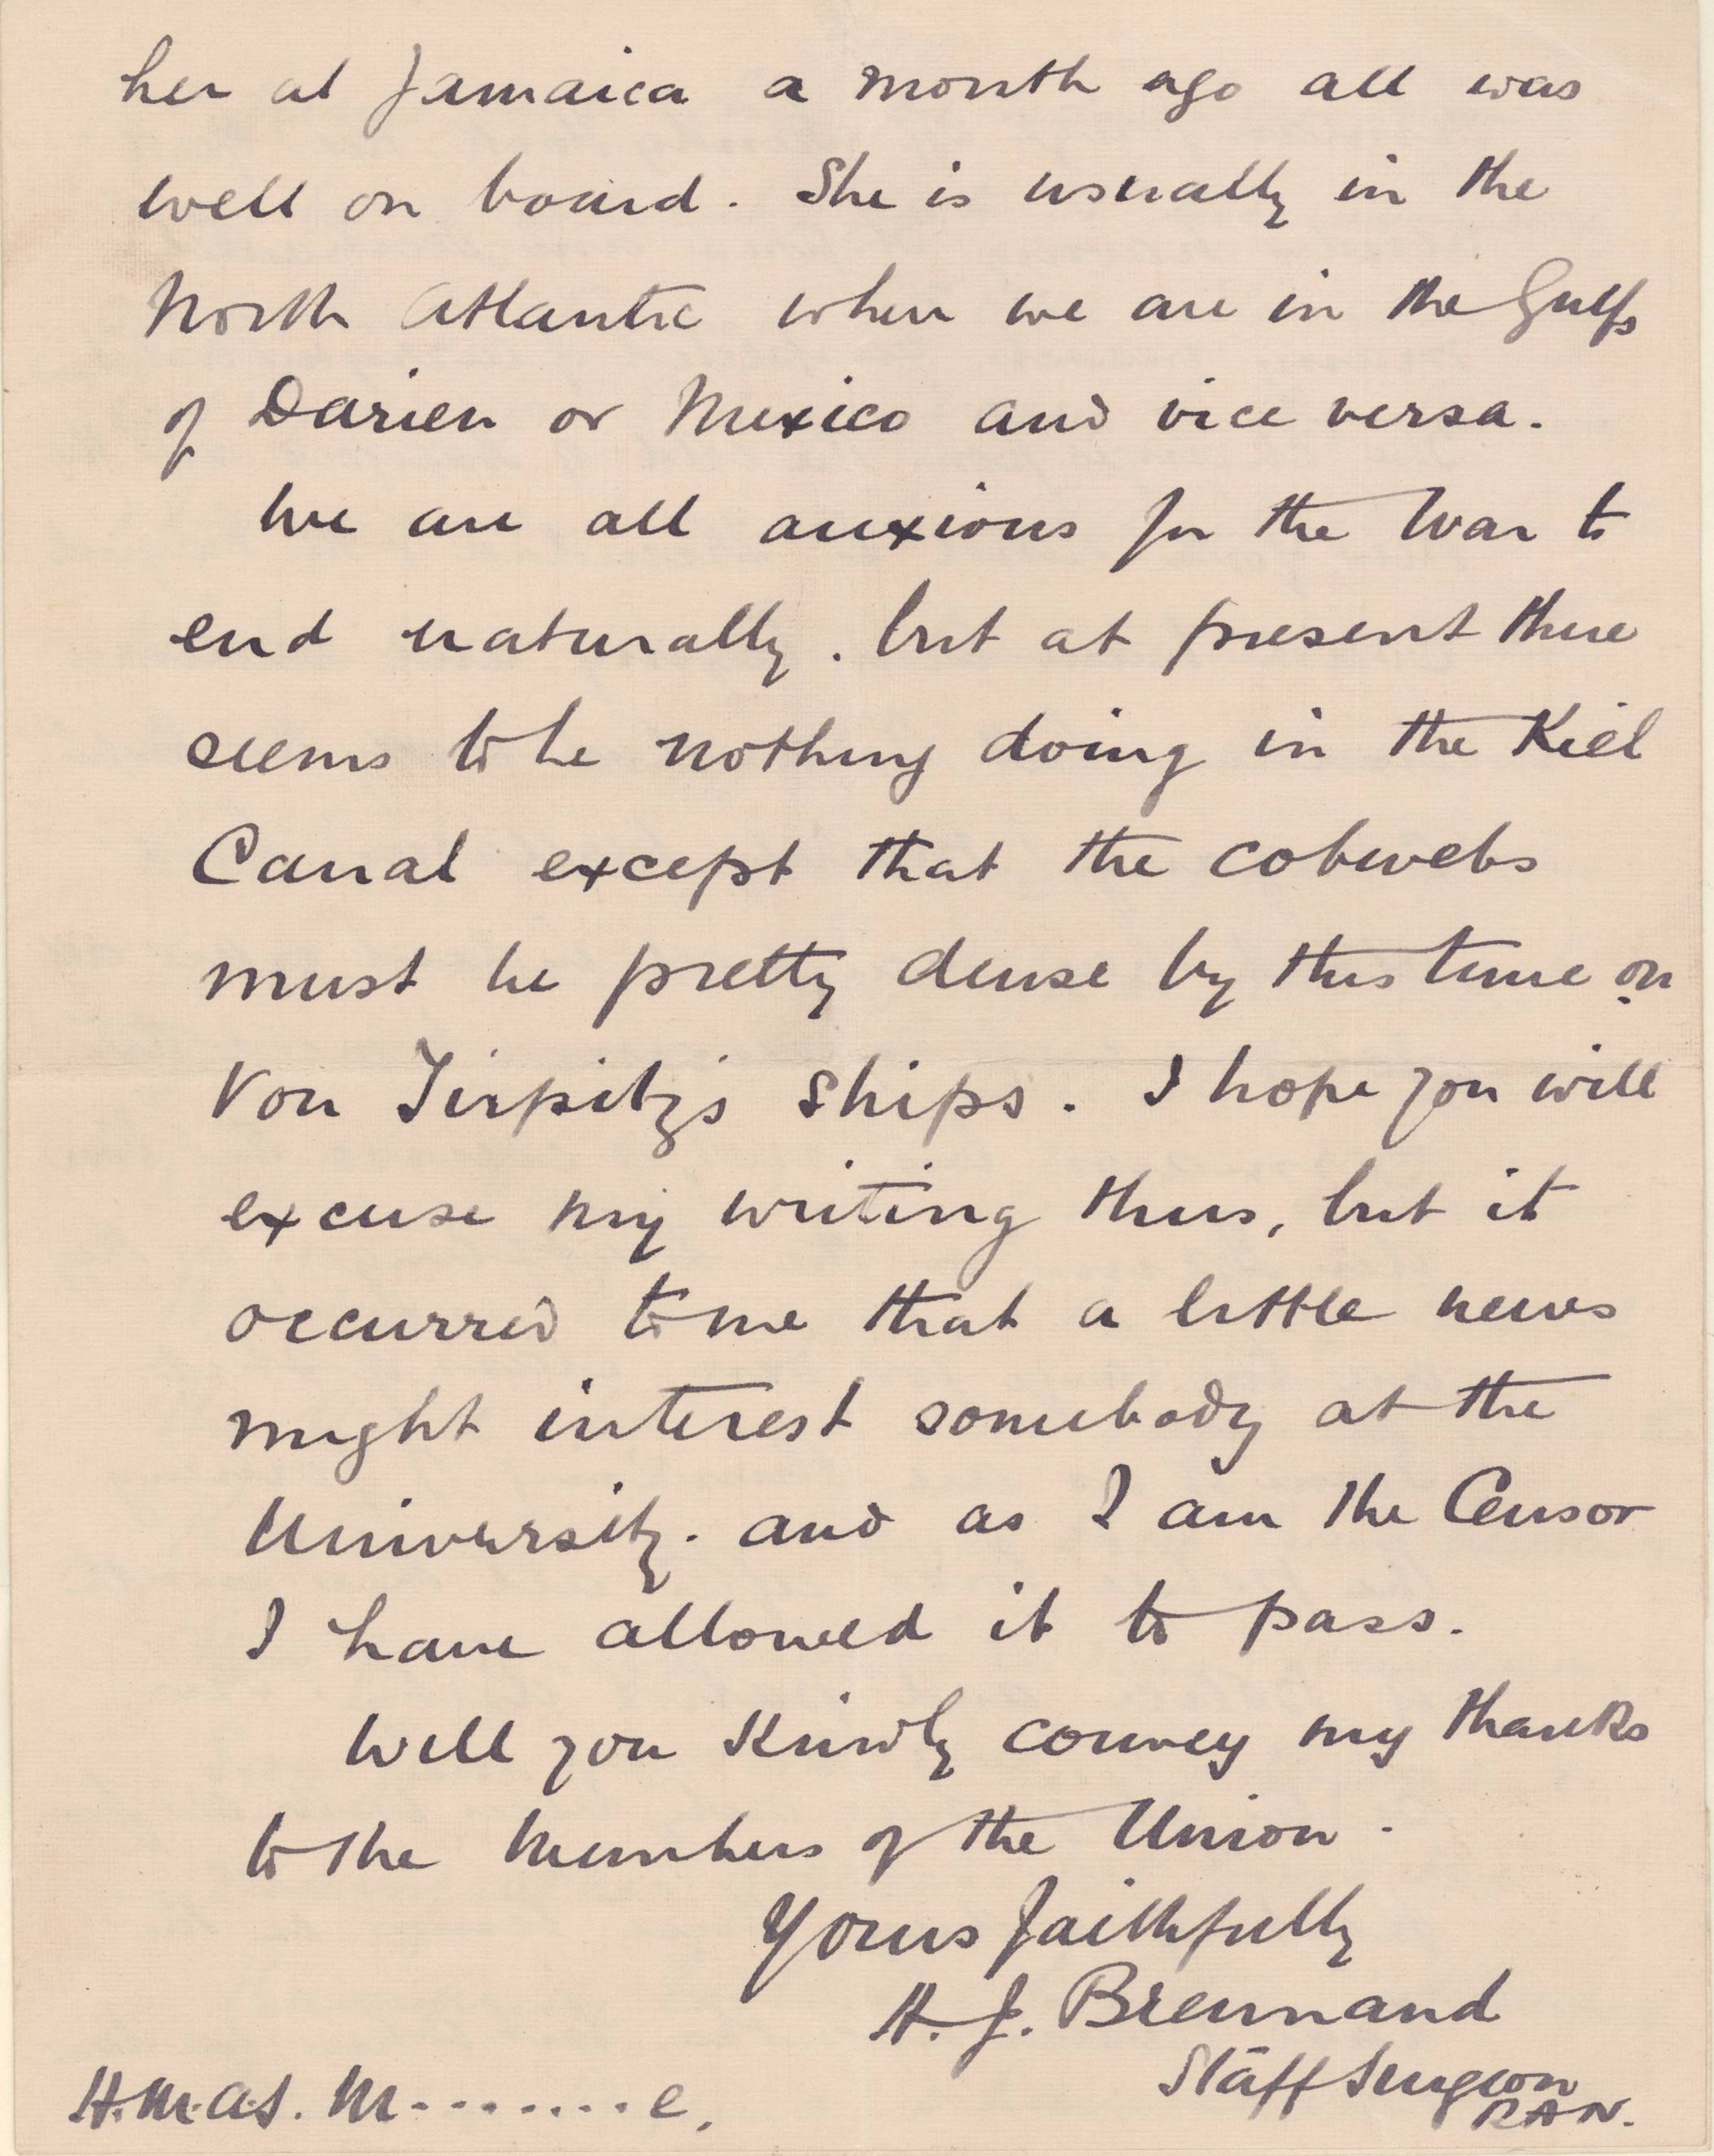 her at Jamaica a month ago all was
well on board. She is usually in the
North Atlantic when we are in the Gulfs
of Darien or Mexico and vice versa.
We are all anxious for the War to
end naturally. but at present there
seems to be nothing doing in the Kiel
Canal except that the cobwebs
must be pretty dense by this time on
Von Tirpitz's ships. I hope you will
excuse my writing thus, but it
occurred to me that a little news
might interest somebody at the
University. and as I am the Censor
I have allowed it to pass.
Will you kindly convey my thanks
to the Members of the Union.
Yours faithfully
H. J. Brennand
Staff Surgeon
RAN.
H.M.A.S. M........e.